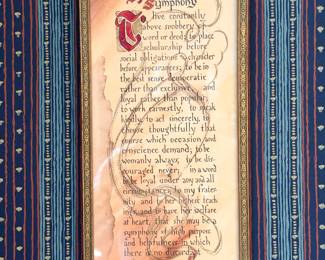 Symphony
To live constantly
above snobbery of
word or deed; to place
scholarship before
social obligations & character
before appearances; to be in
the best sense democratic
rather than exclusive, and
loyal rather than popular;
to work earnestly, to speak
kindly, to act sincerely, to
choose thoughtfully that
course which occasion and
conscience demand; to be
womanly always; to be dis-
couraged never; in a word
to be loyal under any and all
circumstances to my frater-
nity and her highest teach-
ings and to have her welfare
at heart, that she may be a
symphony of high purpose
and helpfulness in which
there is no discordant